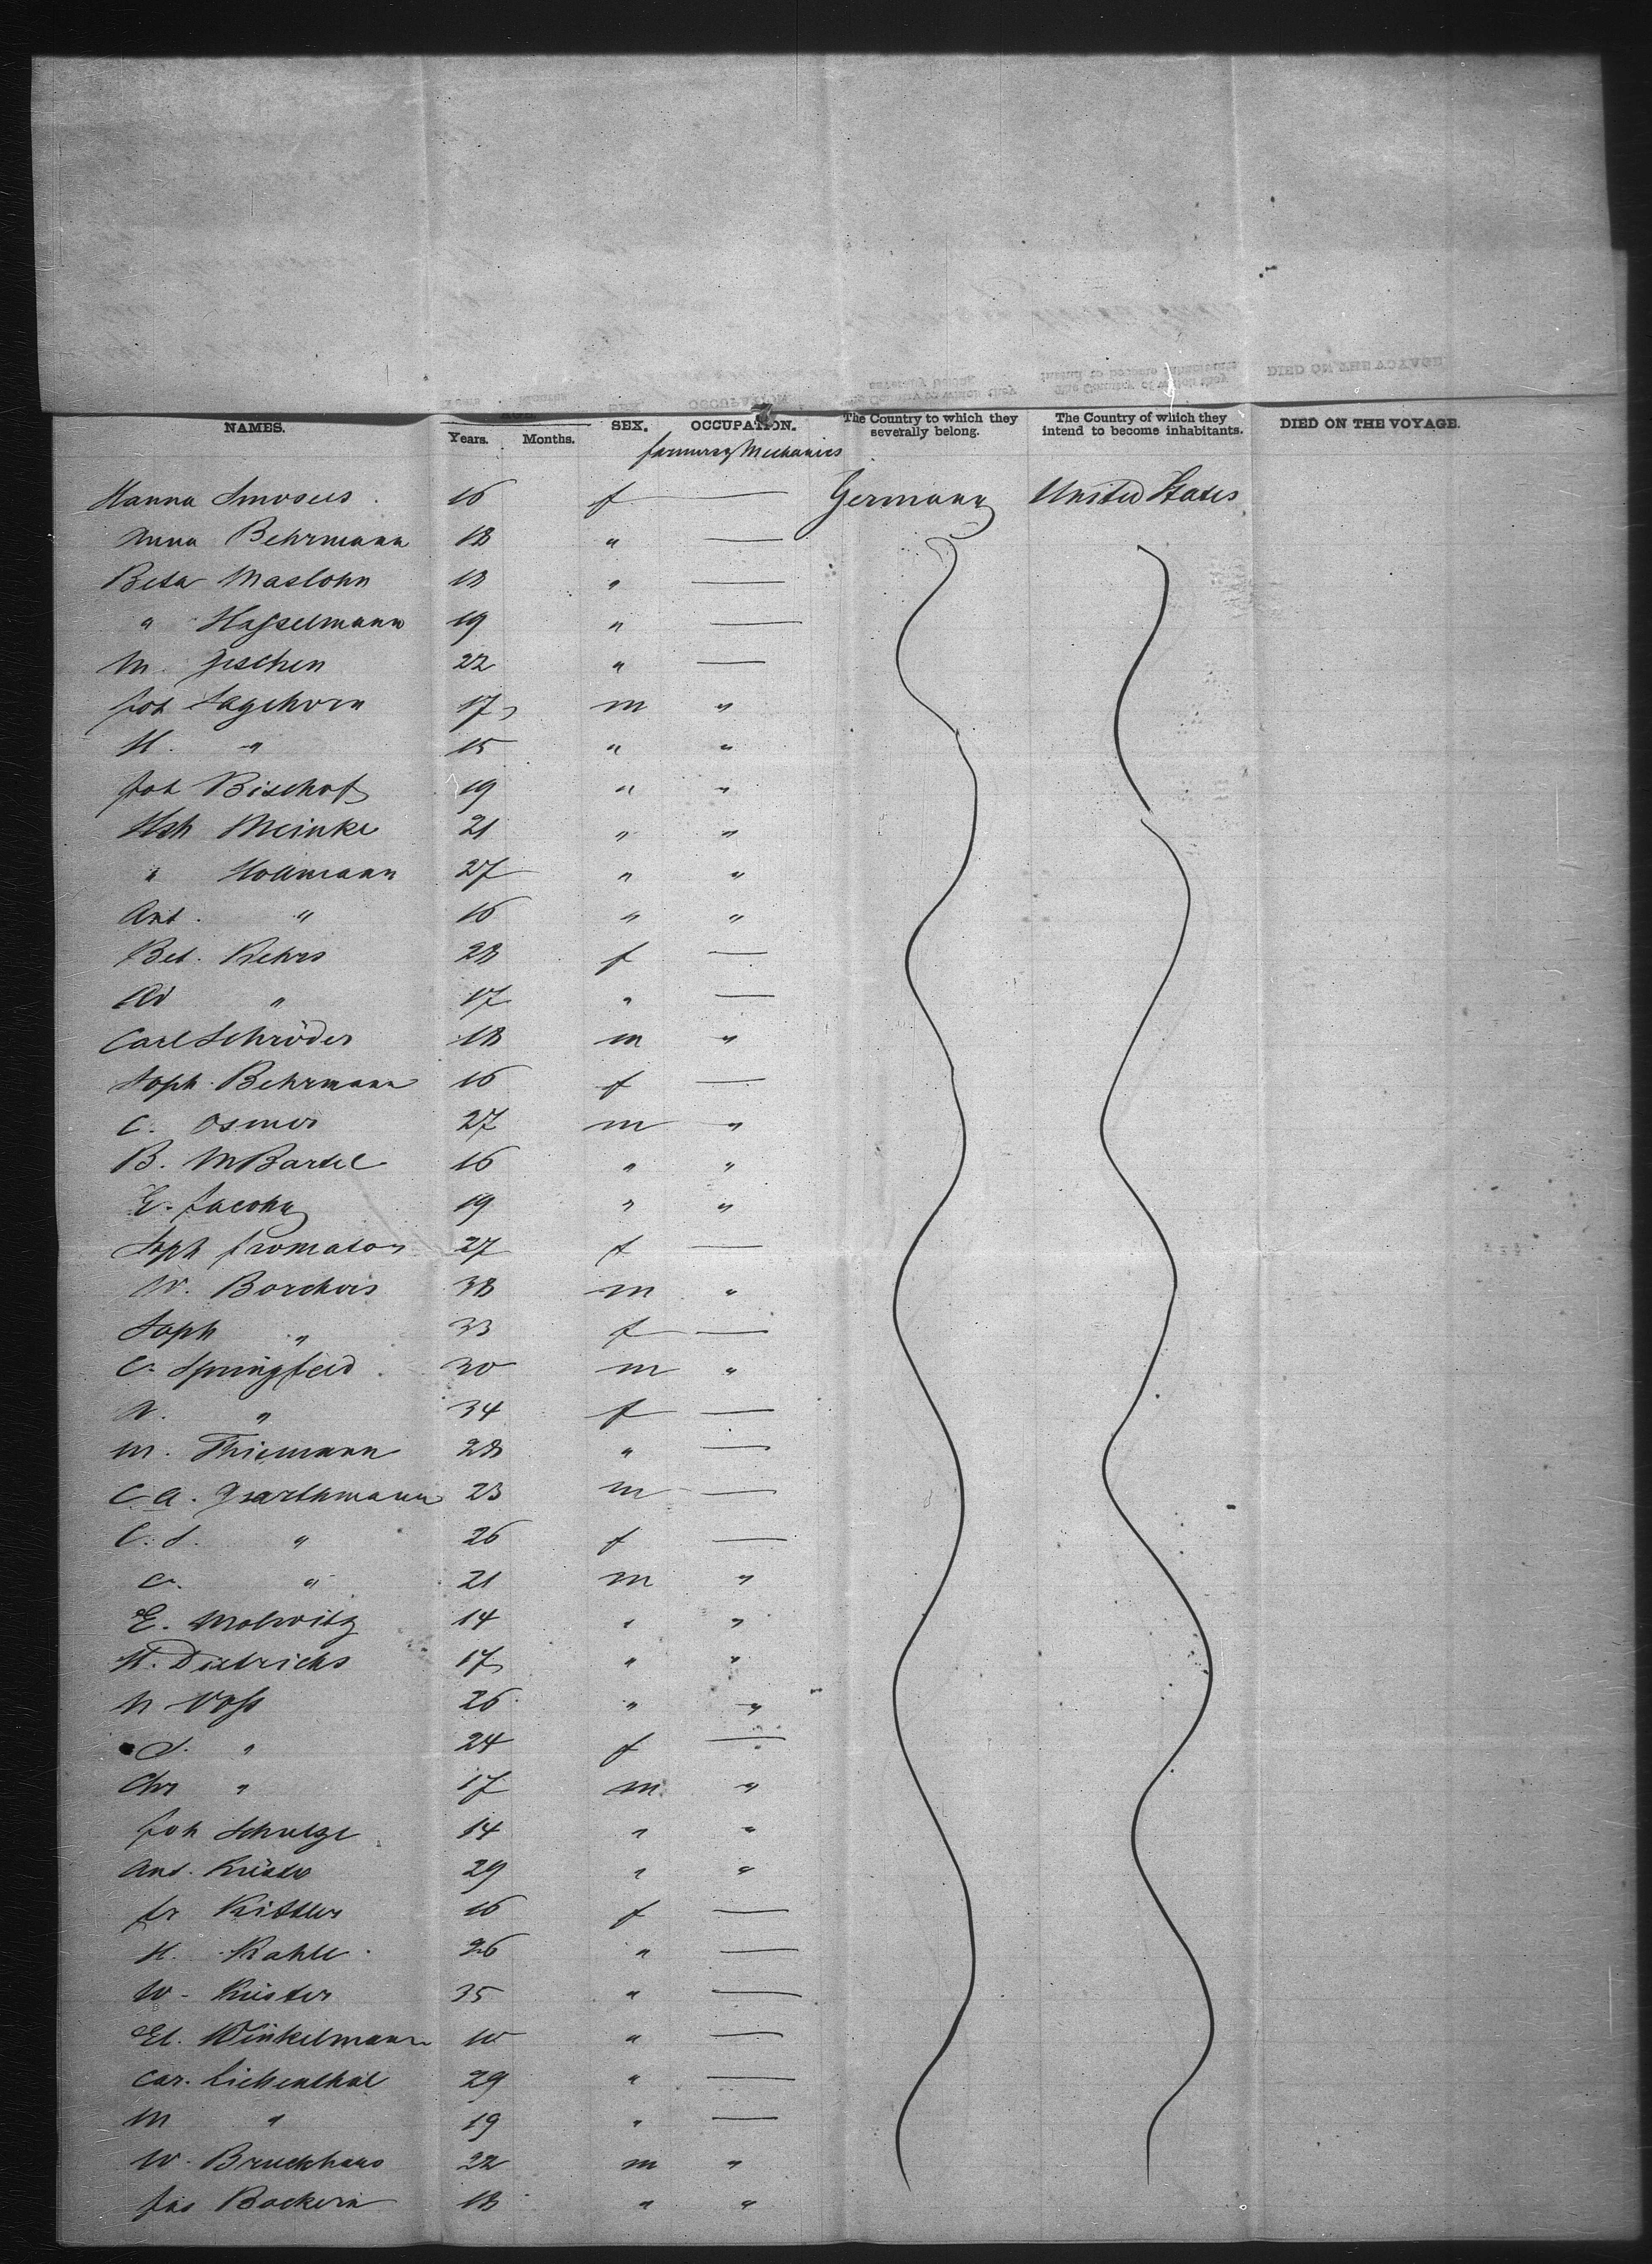 NAMES. Years. Months. SEX. OCCUPATION. The Country to which they severally belong. The Country of which they intend to become inhabitants. DIED ON THE VOYAGE.
farmers & Mechanics
Hanna 16 f — Germany United States
Anna Behrmann 18 " —
Beta Maslohn 18 " —
" Hasselmann 19 " —
M. Jeschen 22 " —
Joh Sagehorn 17 m "
H. " 15 " "
Joh Bischof 19 " "
Hch Meinke 21 " "
" Hollmann 27 " "
Ant. " 16 " "
Bet. Kehrs 28 f —
Ad " 17 " —
Carl Schröder 18 m "
Soph Behrmann 16 f —
C. Osmer 27 m "
B. M Bartel 16 " "
E. Jacoby 19 " "
Soph 27 f —
W. Borchers 38 m "
Soph " 33 f —
C. Springfeld 30 m "
" 34 f —
M. Thiemann 28 " —
C. A. 23 m —
C. S. " 26 f —
C. " 21 m "
E. Molwitz 14 " "
H. Dietrichs 17 " "
N Voss 26 " "
S. " 24 f —
Chr " 17 m "
Joh Schulze 14 " "
Ant. 29 " "
Fr Kittler 16 f —
H. Kahle 26 " —
W. Küster 35 " —
El. Winkelmann 10 " —
Car. Lichenthal 29 " —
M " 19 " —
W. Bruckhaus 22 m "
Bockern 18 " "